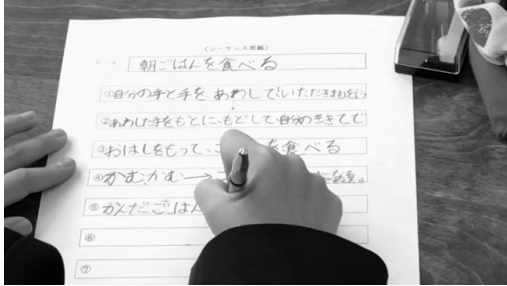 〈シーケンス用紙〉
朝ごはんを食べる
①自分の手と手をあわしていただきますを言う
②あわした手をもとにもどして自分のききてで
③おはしをもって、 を食べる
④かむ、かむ→
⑤かんだごはん
⑥
⑦